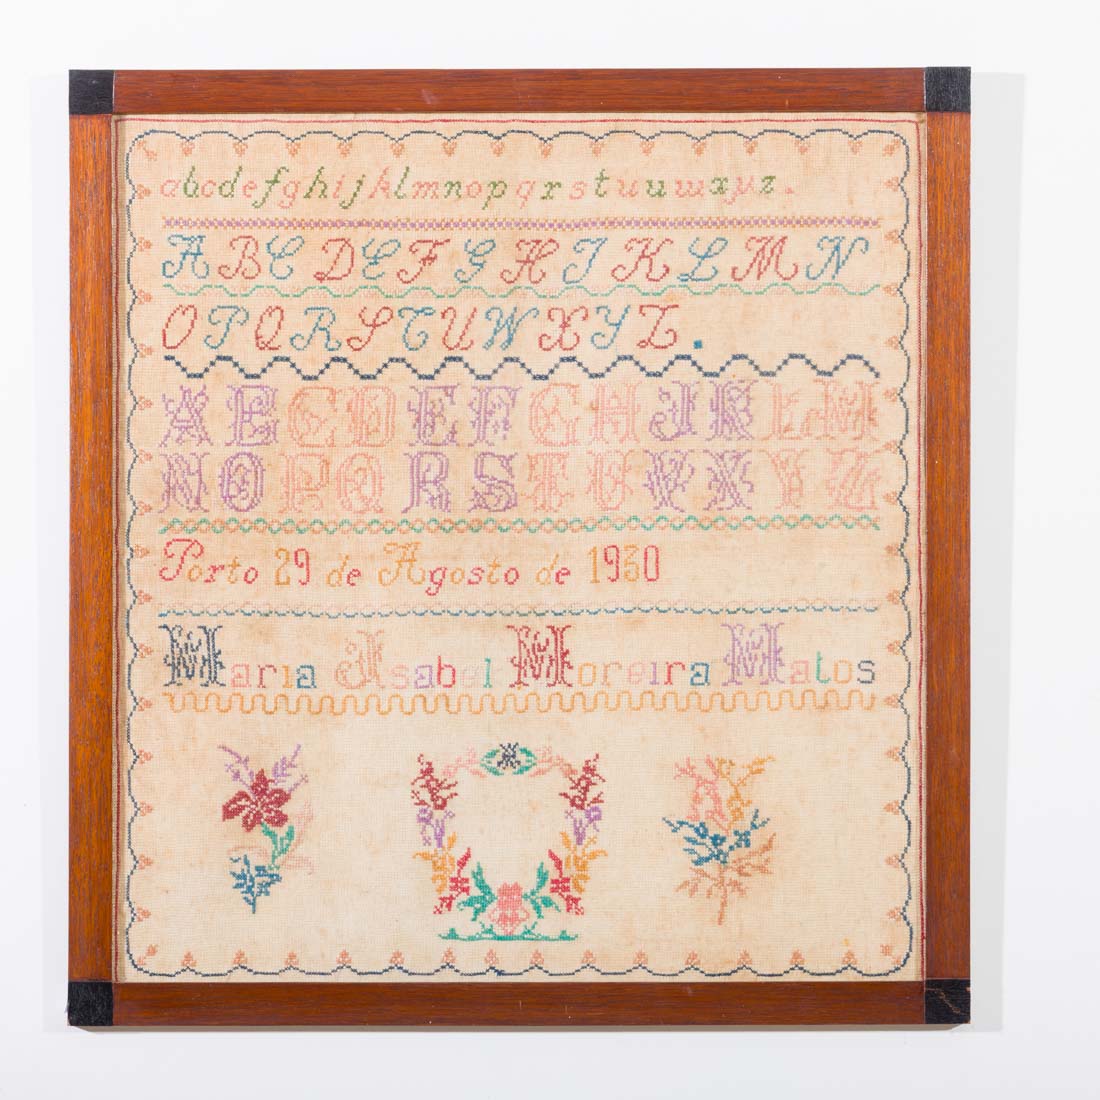 abcdefghijklmnopqrstuuwxyz.
ABCDEFGHIKLMN
OPQRSTUWXYZ.
ABCDEFGHJKLM
NOPQRSTUVXYZ
Porto 29 de Agosto de 1930
Maria Isabel Moreira Matos